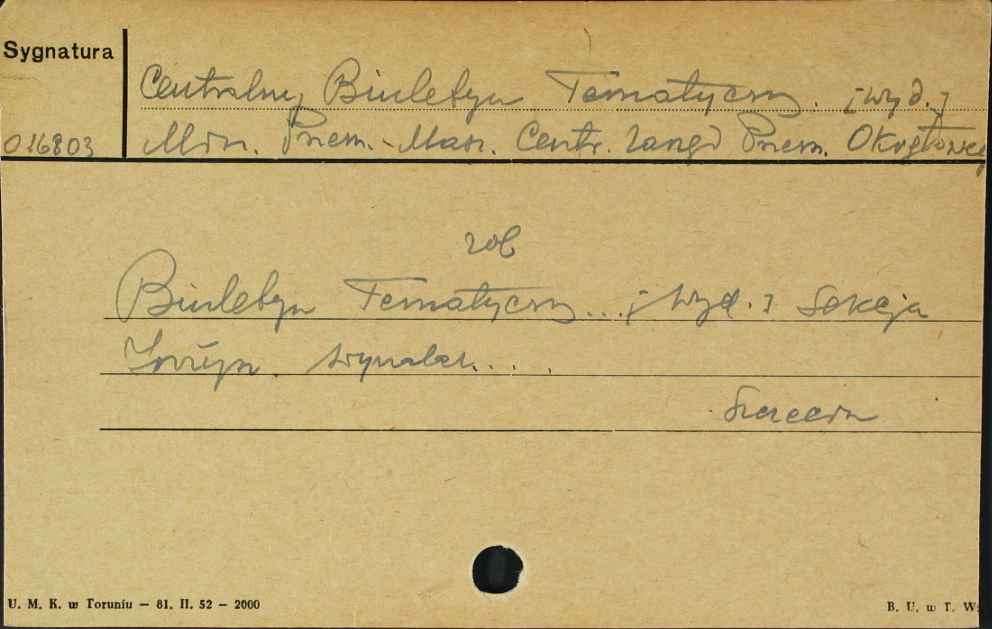 Sygnatura
Centralny Biuletyn Tematyczny. [wyd.]
016803 Min. Przem.-Masz. Centr. Zarząd Przem. Okrętowej
zob
Biuletyn Tematyczny... [wyd.] Sekcja
wynalaz....
Szczecin
U. M. K. w Toruniu — 81. II. 52 — 2000
B. U. w T. W